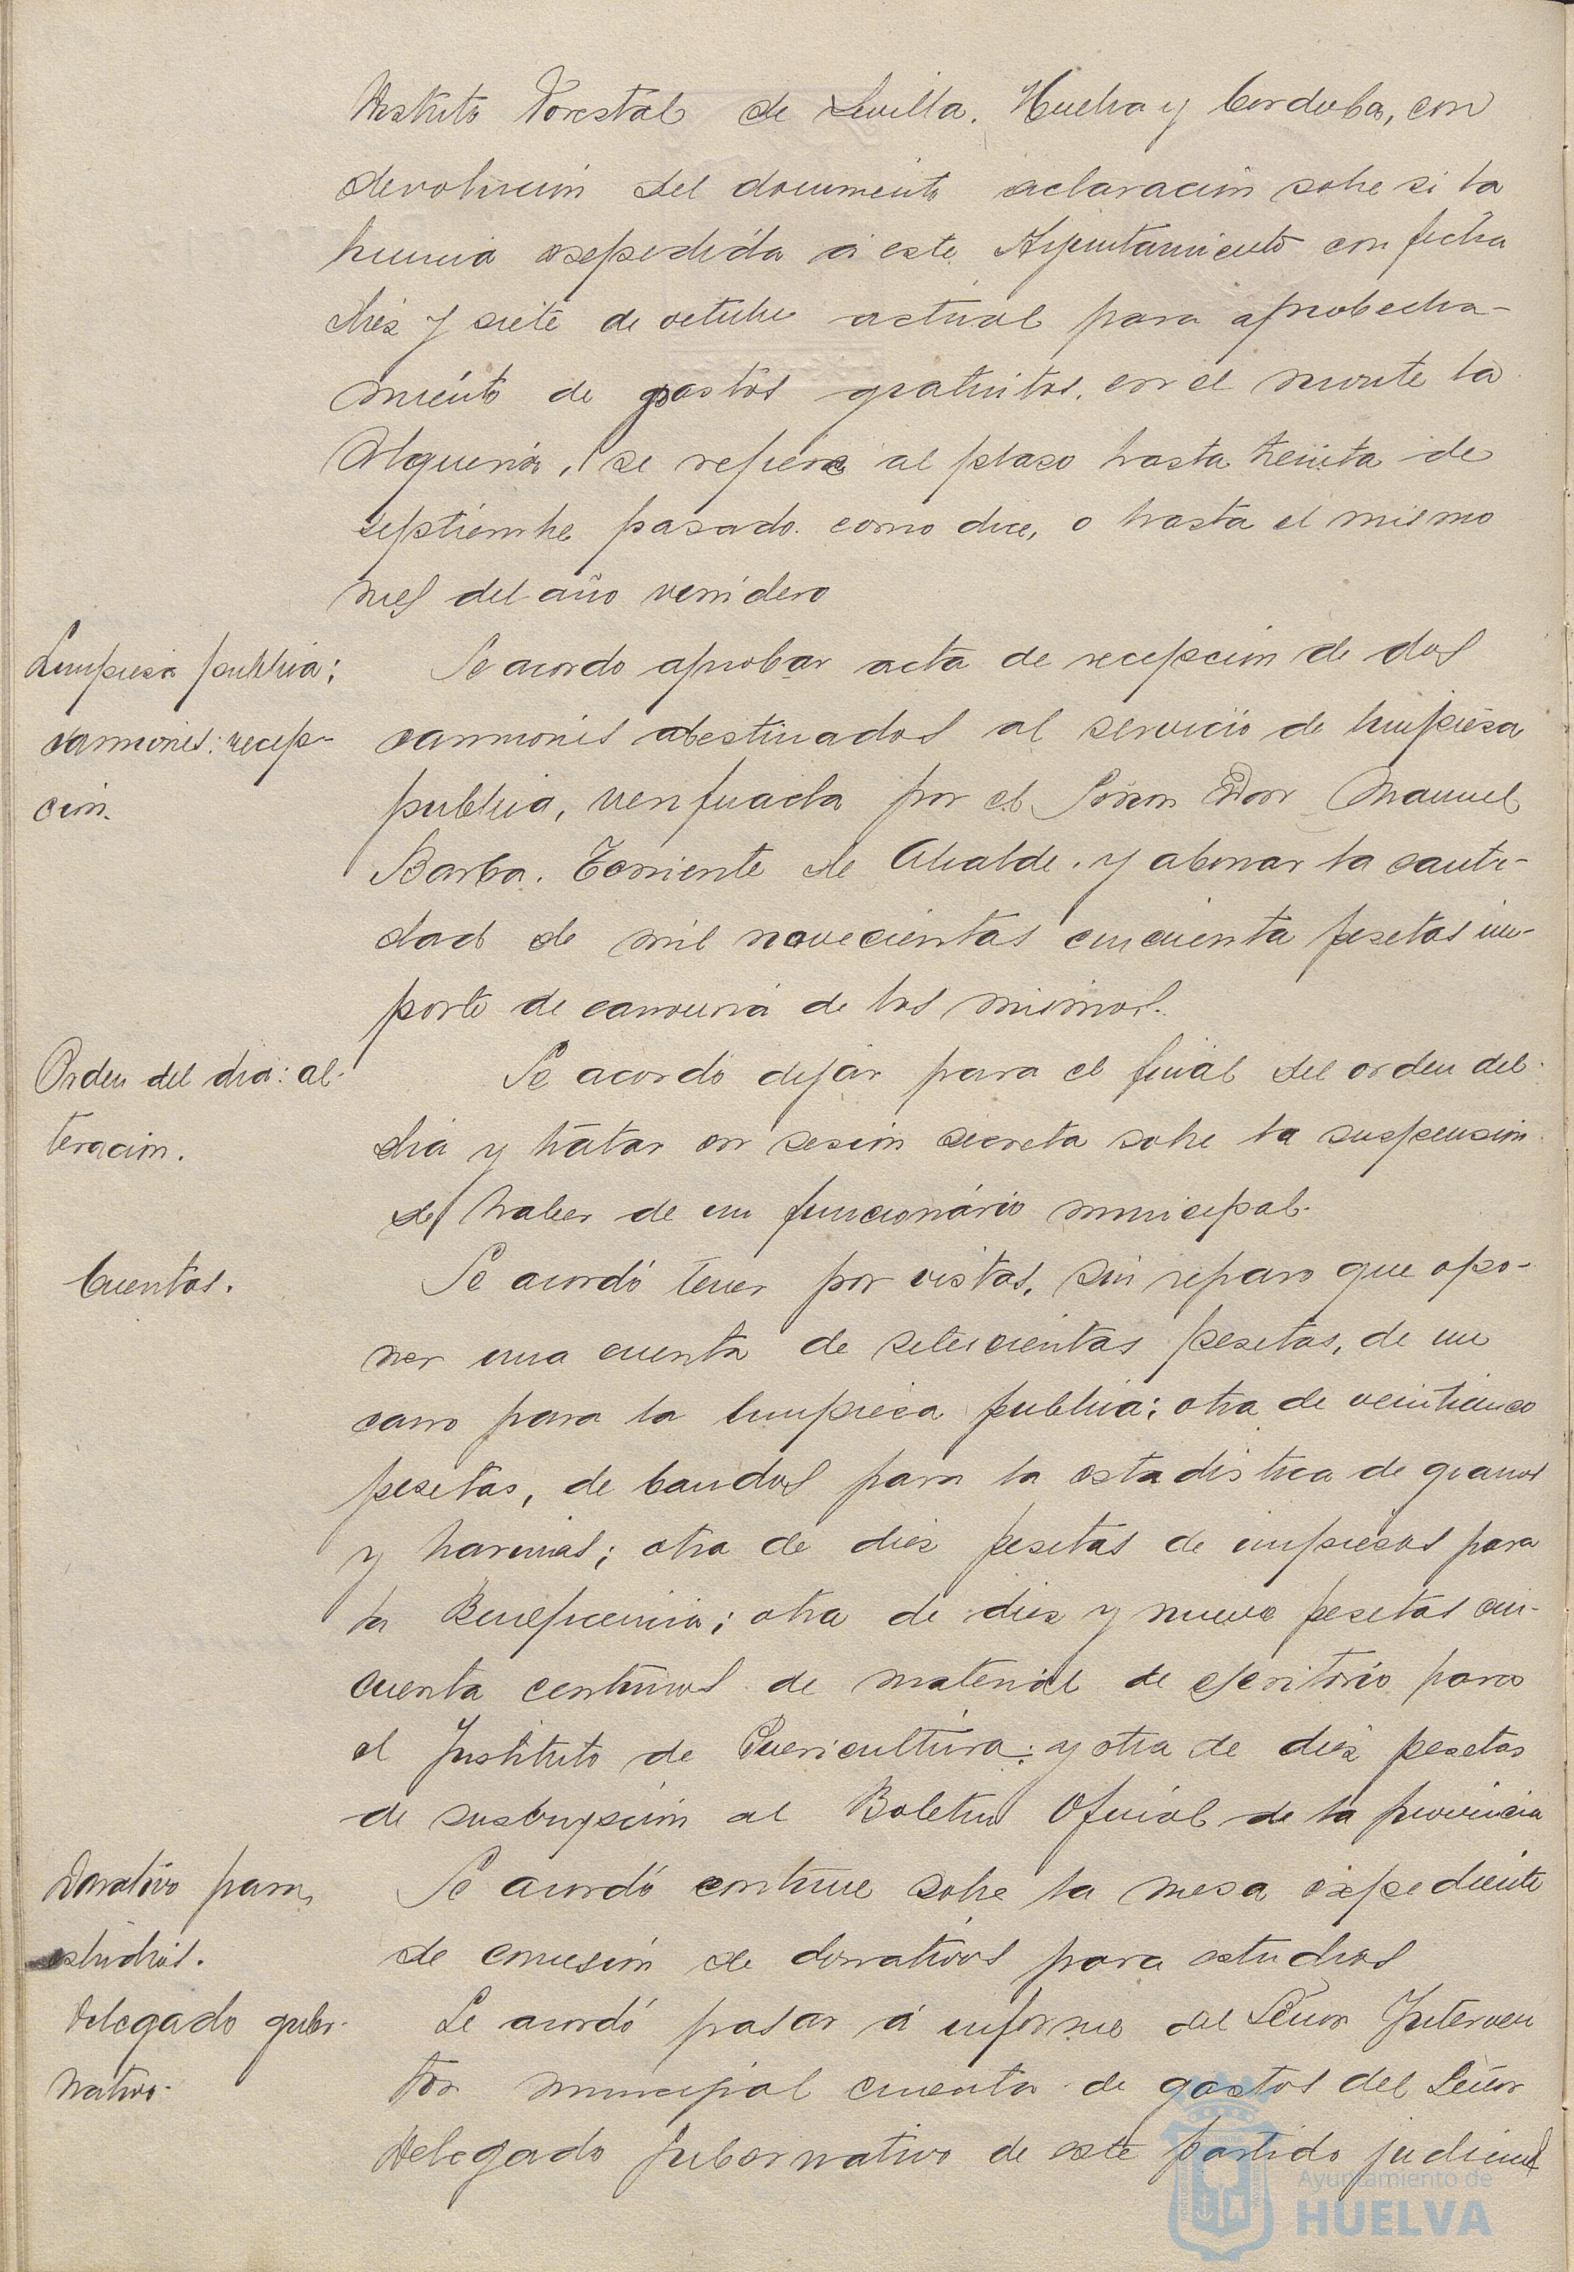 Distrito Forestal de Sevilla, Huelva y Cordoba, con
devolución del documento aclaración sobre si la
licencia expedida á este Ayuntamiento con fecha
diez y siete de octubre actual para aprobecha-
miento de pastos gratuitos, en el monte la
Alqueria, se refiere al plaso hasta treinta de
septiembre pasado como dice, o hasta el mismo
mes del año venidero
Limpiesa publica;
camiones: recep-
ción.
Se acordo aprobar acta de recepción de dos
camiones destinados al servicio de limpiesa
publica, verificada por el Señor Don Manuel
Barba, Teniente de Alcalde, y abonar la canti-
dad de mil novecientas cincuenta pesetas im-
porte de carroceria de los mismos.
Orden del dia: al-
teración.
Se acordó dejar para el final del orden del
dia y tratar en sesión secreta sobre la suspensión
de haber de un funcionário municipal.
Cuentas.
Se acordó tener por vistas, sin reparo que opo-
ner una cuenta de setecientas pesetas, de un
carro para la limpiesa publica; otra de veinticinco
pesetas, de bandos para la estadistica de granos
y harinas; otra de diez pesetas de impresos para
la Beneficencia; otra de diez y nueve pesetas cin-
cuenta centimos de material de escritorio para
el Instituto de Puericultura; y otra de diez pesetas
de suscripción al Boletin Oficial de la provincia
Donativo para
estudios.
Se acordó continue sobre la mesa expediente
de concesión de donativos para estudios
Delegado guber-
nativo.
Se acordó pasar á informe del Señor Interven
tor municipal cuenta de gastos del Señor
Delegado gubernativo de este partido judicial
Ayuntamiento de
HUELVA